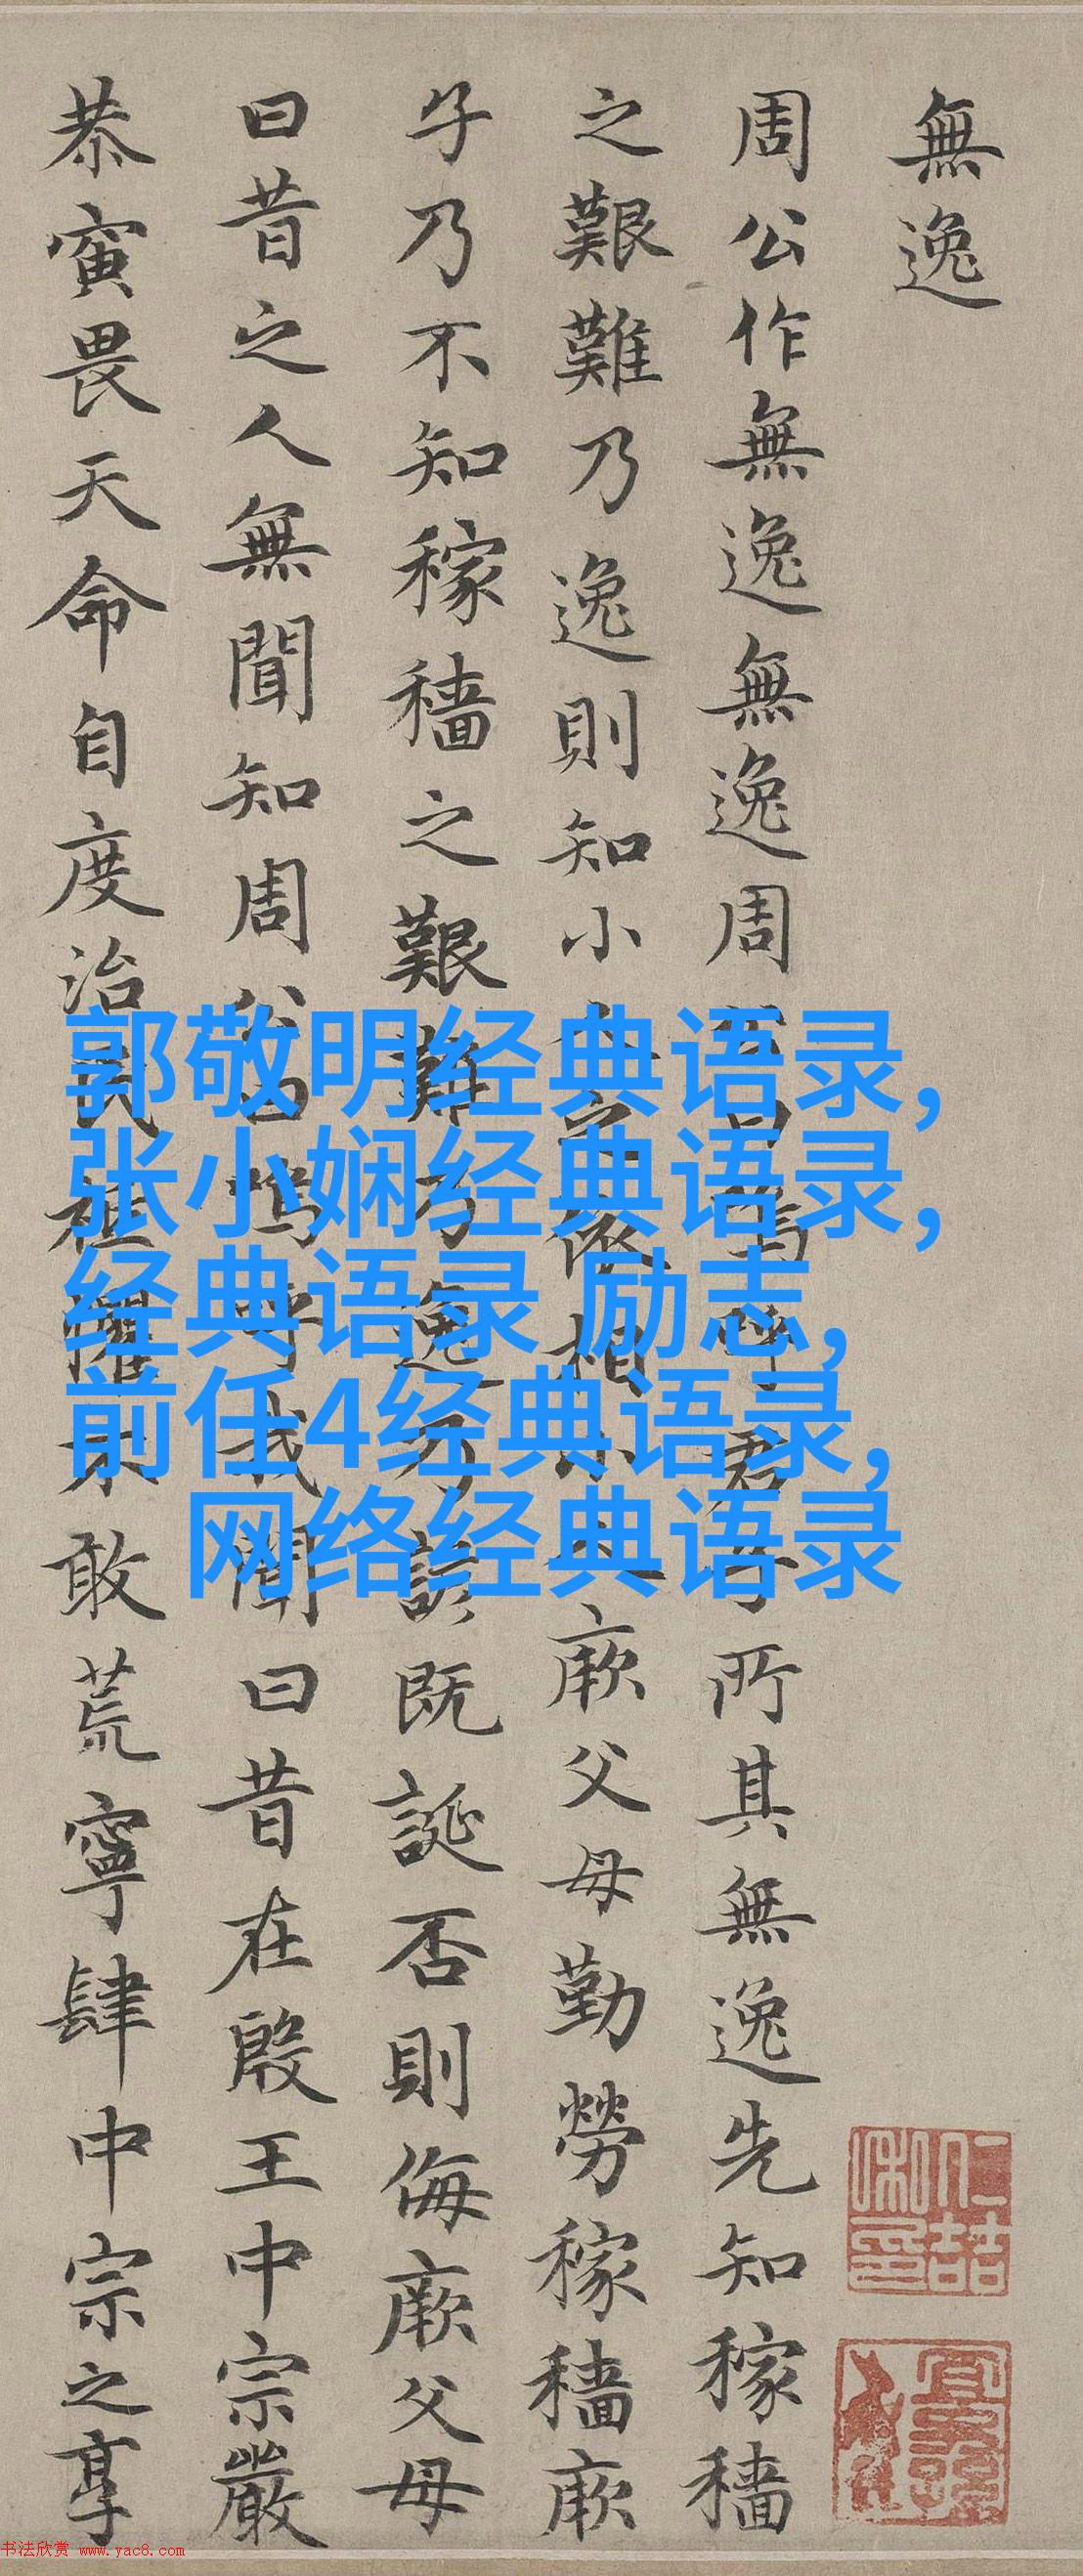 無逸
周公作無逸無逸周公曰嗚呼君子所其無逸先知稼穡
之艱難乃逸則知小人之依相小人厥父母勤勞稼穡厥
子乃不知稼穡之艱難乃逸乃諺既誕否則侮厥父母
曰昔之人無聞知周公曰嗚呼我聞曰昔在殷王中宗嚴
恭寅畏天命自度治民祗懼不敢荒寧肆中宗之享
郭敬明经典语录,
张小娴经典语录,
经典语录 励志,
前任4经典语录,
网络经典语录
书法欣赏 www.yac8.com